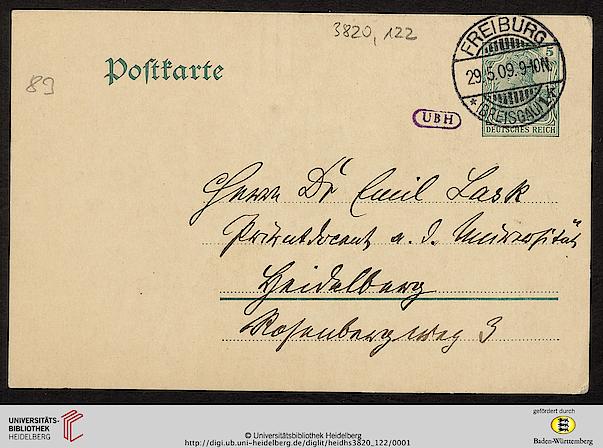 3820, 122
89
Postkarte
FREIBURG
29.5.09.9-10N.
* (BREISGAU) 1k
5
DEUTSCHES REICH
UBH
Herrn Dr Emil Lask
Privatdocent a. d. Universität
Heidelberg
Rosenbergweg 3
UNIVERSITÄTS-
BIBLIOTHEK
HEIDELBERG
© Universitätsbibliothek Heidelberg
http://digi.ub.uni-heidelberg.de/diglit/heidhs3820_122/0001
gefördert durch
Baden-Württemberg